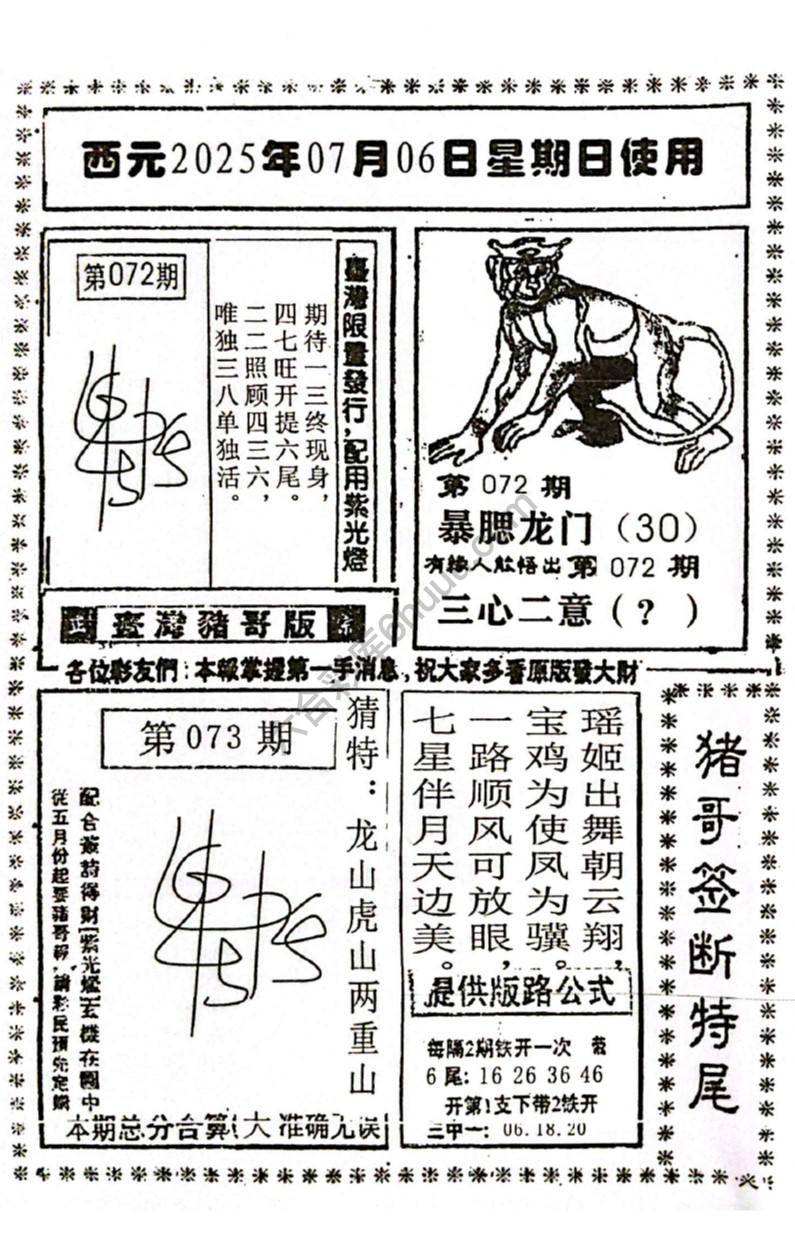 西元2025年07月06日星期日使用
第072期
臺灣限量發行，配用紫光燈
期待一三终现身，
四七旺开提六尾。
二二照顾四三六，
唯独三八单独活。
臺灣豬哥版
第 072 期
暴腮龙门（30）
有緣人能悟出 第 072 期
三心二意（？）
各位彩友們：本報掌握第一手消息，祝大家多看原版發大財
第 073 期
猜特：龙山虎山两重山
配合簽詩得財[紫光燈]玄機在圖中
從五月份起要豬哥報，請彩民預先定購
本期总分合算(大 准确无误
瑶姬出舞朝云翔，
宝鸡为使凤为骥。
一路顺风可放眼，
七星伴月天边美。
提供版路公式
每隔2期铁开一次
6尾：16 26 36 46
开第1支下带2铁开
三中一：06.18.20
猪哥签断特尾
六合彩库6huuu.com